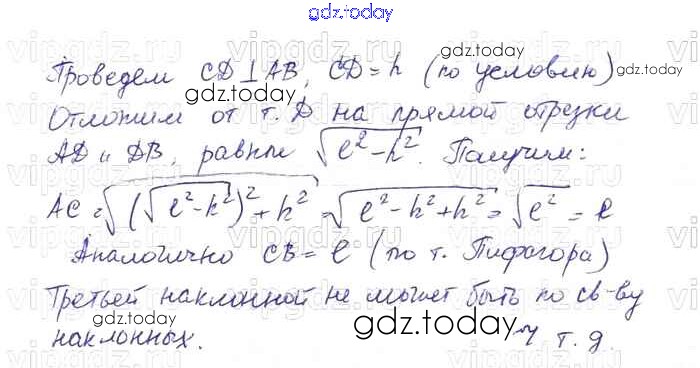 gdz.today
Проведем CD⊥AB, CD=h (по условию)
gdz.today
gdz.today
gdz.today
Отложим от т. D на прямой отрезки
AD и DB, равные √(ℓ²-h²). Получим:
AC=√((√(ℓ²-h²))²+h²)=√(ℓ²-h²+h²)=√ℓ²=ℓ
Аналогично CB=ℓ (по т. Пифагора)
Третьей наклонной не может быть по св-ву
наклонных.
gdz.today
ч т. д.
vipgdz.ru